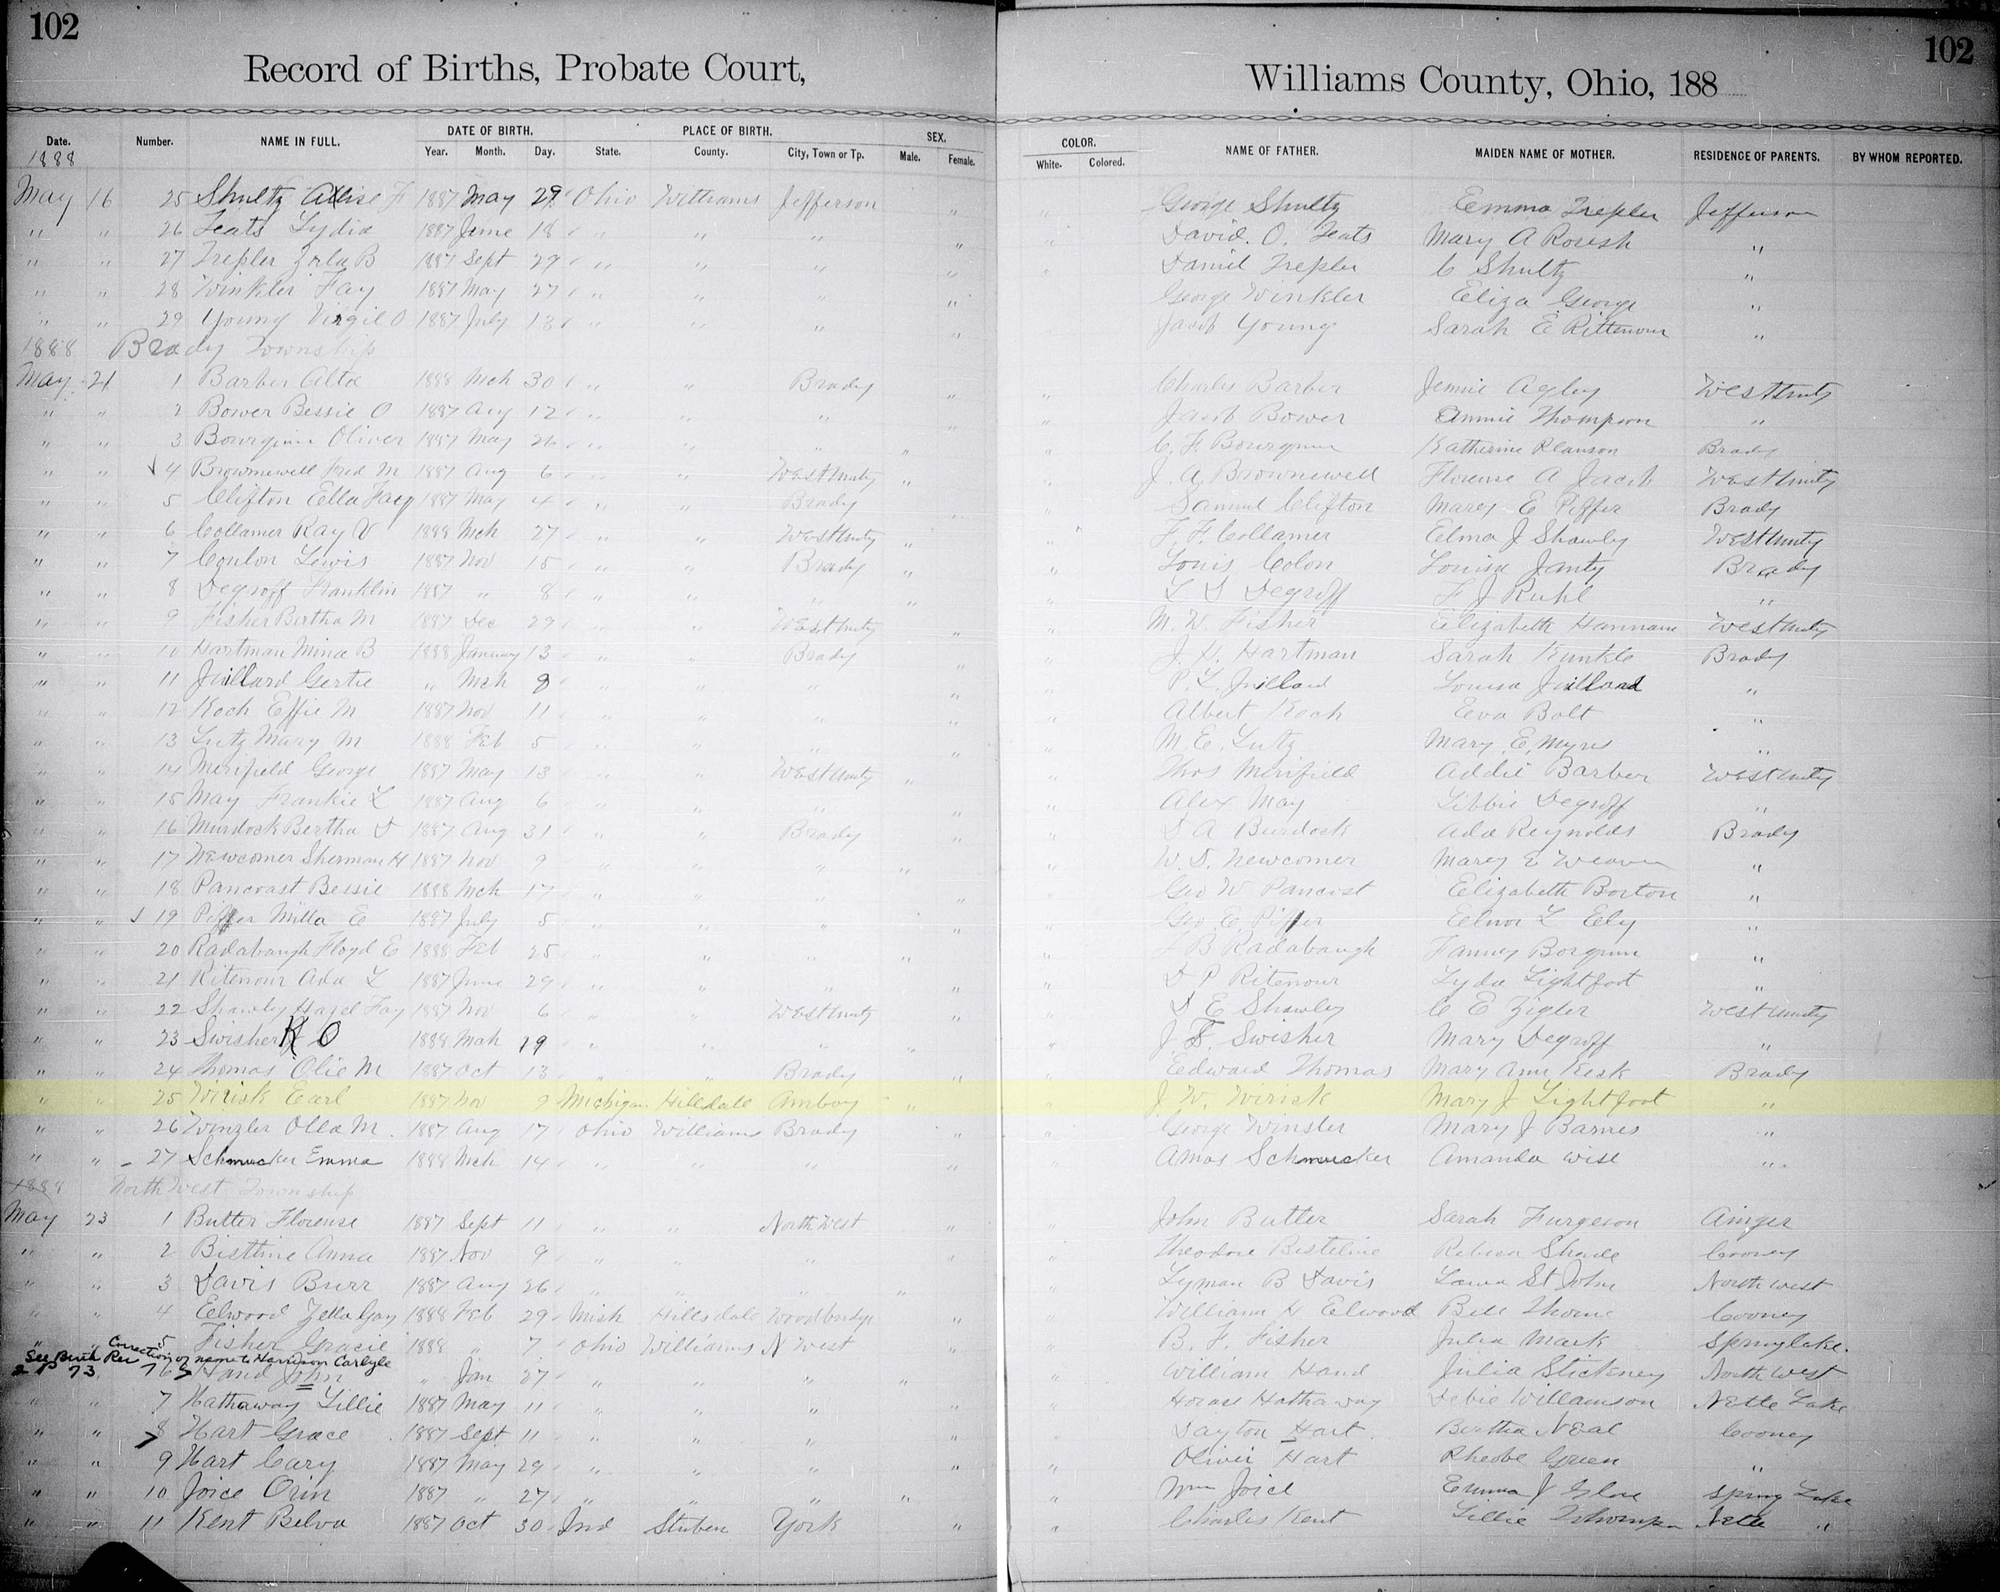 102
102
Record of Births, Probate Court,
Williams County, Ohio, 188
Date. Number. NAME IN FULL. DATE OF BIRTH. PLACE OF BIRTH. SEX. COLOR. NAME OF FATHER. MAIDEN NAME OF MOTHER. RESIDENCE OF PARENTS. BY WHOM REPORTED.
Year. Month. Day. State. County. City, Town or Tp. Male. Female. White. Colored.
1888
May 16 25 Shultz 1887 May 29 Ohio Williams Jefferson " " George Shultz Emma Trepler Jefferson
" " 26 Teats Lydia 1887 June 18 " " " " " David. O. Teats Mary A "
" " 27 Trepler Zola B 1887 Sept 29 " " " " " Daniel Trepler C Shultz "
" " 28 Winkler Fay 1887 May 27 " " " " " George Winkler Eliza George "
" " 29 Young Virgil O 1887 July 13 " " " " " Jacob Young Sarah E Rittenour "
1888 Brady Township
May 21 1 Barber Alta 1888 Mch 30 " " Brady " " Charles Barber Jennie West Unity
" " 2 Bower Bessie O 1887 Aug 12 " " " " " Jacob Bower Annie Thompson "
" " 3 Bourquin Oliver 1887 May 26 " " " " " C. F. Bourquin Katherine Brady
" " 4 Brownewell Fred M 1887 Aug 6 " " West Unity " " J. A. Brownewell Florense A Jacob West Unity
" " 5 Clifton Ella Facy 1887 May 4 " " Brady " " Samuel Clifton Mary E Piffer Brady
" " 6 Collamer Ray V 1888 Mch 27 " " West Unity " " F. F. Collamer Elma J Shawley West Unity
" " 7 Coulon Lewis 1887 Nov 15 " " Brady " " Louis Colon Louisa Janty Brady
" " 8 Degroff Franklin 1887 " 8 " " " " " L D Degroff F J Ruhl "
" " 9 Fisher Bertha M 1887 Dec 29 " " West Unity " " M. W. Fisher Elizabeth Hannam West Unity
" " 10 Hartman Mina B 1888 January 13 " " Brady " " J. D. Hartman Sarah Kunkle Brady
" " 11 Juillard Gertie " Mch 8 " " " " " P. L. Juillard Louisa Juillard "
" " 12 Koch Effie M 1887 Nov 11 " " " " " Albert Koch Eva Bolt "
" " 13 Lutz Mary M 1888 Feb 5 " " " " " M. E. Lutz Mary E. Myres "
" " 14 Merifield George 1887 May 13 " " West Unity " " Thos Merifield Addie Barber West Unity
" " 15 May Frankie L 1887 Aug 6 " " " " " Alex May Libbie Degroff "
" " 16 Murdock Bertha D 1887 Aug 31 " " Brady " " D A Burdock Ada Reynolds Brady
" " 17 Newcomer Sherman H 1887 Nov 9 " " " " " W. D. Newcomer Mary E Weaver "
" " 18 Pancoast Bessie 1888 Mch 17 " " " " " Geo W Pancost Elizabeth Borton "
" " 19 Piffer Milla E 1887 July 5 " " " " " Geo E. Piffer Elnor L Ely "
" " 20 Radabaugh Floyd E 1888 Feb 25 " " " " " J B Radabaugh Fanney Borquin "
" " 21 Ritenour Ada L 1887 June 29 " " " " " D P Ritenour Lyda Lightfoot "
" " 22 Shawley Hazel Fay 1887 Nov 6 " " West Unity " " D E Shawley C E Zigler West Unity
" " 23 Swisher K O 1888 Mch 19 " " " " " J. F. Swisher Mary Degroff "
" " 24 Thomas Olie M 1887 Oct 13 " " Brady " " Edward Thomas Mary Ann Kesk Brady
" " 25 Wirick Earl 1887 Nov 9 Michigan Hillsdale Amboy " " J. W. Wirick Mary J Lightfoot "
" " 26 Winzler Olla M. 1887 Aug 17 Ohio Williams Brady " " George Winsler Mary J Barnes "
" " 27 Schmucker Emma 1888 Mch 14 " " " " " Amos Schmucker Amanda Wise "
1888 North West Township
May 23 1 Butler Florense 1887 Sept 11 " " North West " " John Butler Sarah Furgeson Ainger
" " 2 Bistline Anna 1887 Nov 9 " " " " " Theodore Bisteline Rebeca Shade Cooney
" " 3 Davis Burr 1887 Aug 26 " " " " " Lyman B Davis Laura St John North west
" " 4 Elwood Zella Gay 1888 Feb 29 Mich Hillsdale Woodbridge " " William H Elwood Bell Thorne Cooney
" " 5 Fisher Gracie 1888 " 7 Ohio Williams N West " " B. F. Fisher Julia Mark Spring Lake.
See Birth Rec Correction of name to Harrison Carlyle
2 P 73 6 Hand John " Jan 27 " " " " " William Hand Julia Stickney North West
" " 7 Hathaway Lillie 1887 May 11 " " " " " Horase Hathaway Debie Willamson Nettle Lake
" " 8 Hart Grace 1887 Sept 11 " " " " " Dayton Hart Bertha Neal Cooney
" " 9 Hart Cary 1887 May 29 " " " " " Oliver Hart Rheobe Green "
" " 10 Joice Orin 1887 " 27 " " " " " Wm Joice Emma J Spring Lake
" " 11 Kent Belva 1887 Oct 30 Ind Stuben York " " Charles Kent Lillie Thompson Nettle "